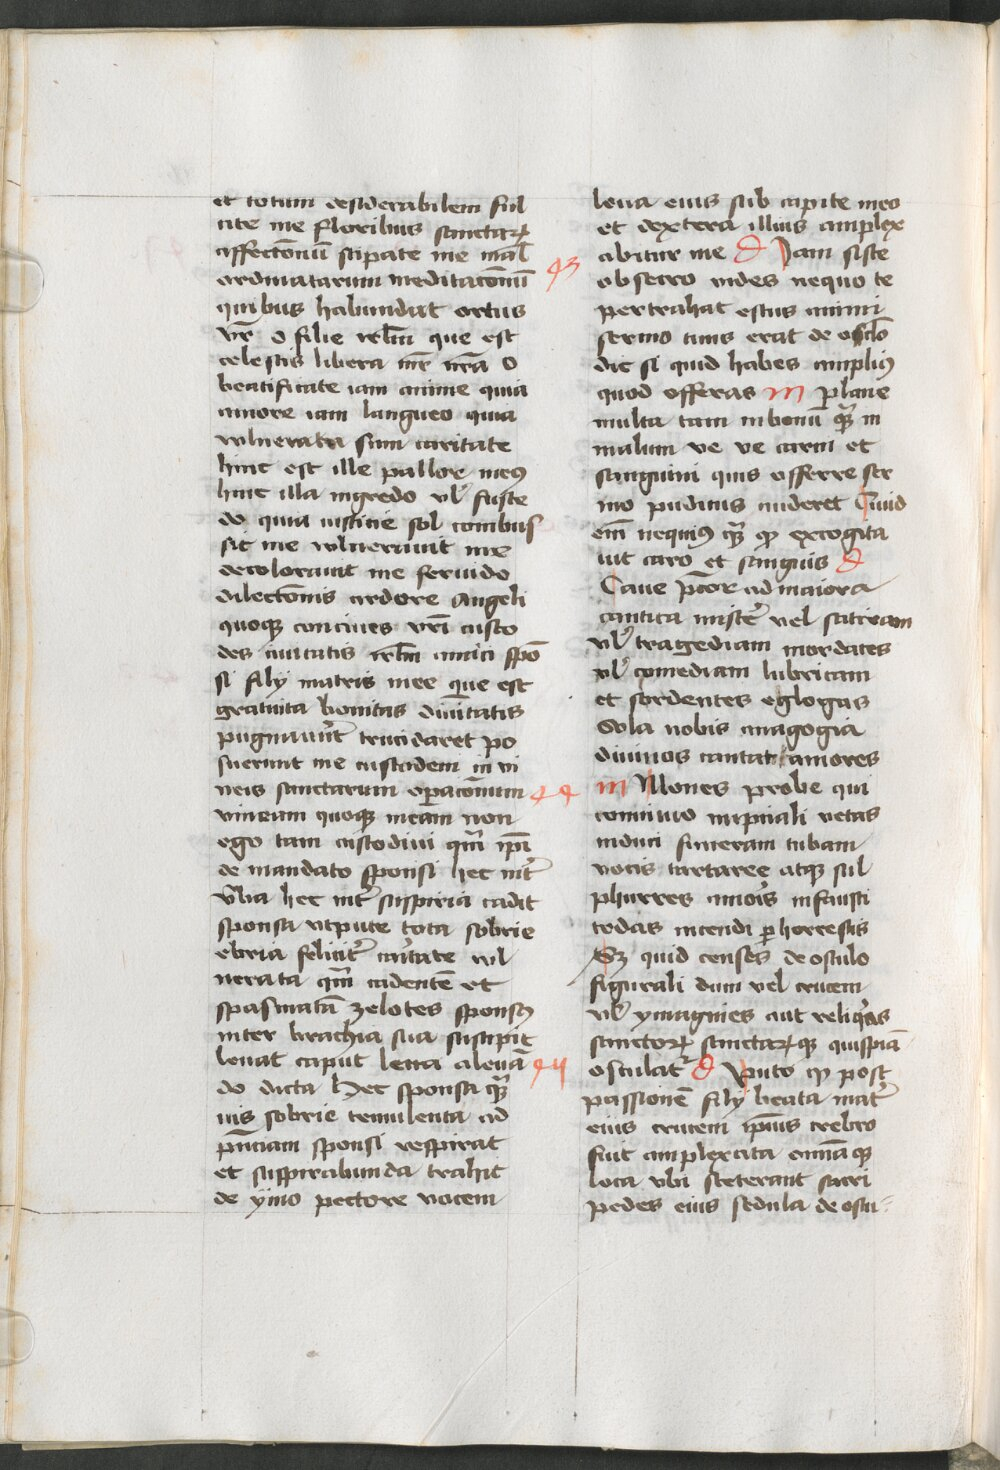 et totum desiderabilem ful
cite me floribus sanctarꝝ
affectōnū stipate me mal
ordinatarum meditacōnū
quibus habundat ortus
vr̄ o filie irl̄m que est
celestis libera mr̄ nr̄a O
beatificate iam anime quia
amore iam langueo quia
vulnerata sum caritate
hinc est ille pallor meꝰ
hinc illa nigredo vl̓ fusce
do quia iusticie sol combus
sit me vulnerauit me
decolorauit me feruido
dilectōnis ardore Angeli
quoqꝫ conciues vr̄i custo
des ciuitatis irl̄m amici spō
si filij matris mee que est
gratuita bonitas diuītatis
pugnauer̄t trucidaret po
suerunt me custodem in vi
neis sanctarum oꝑacōnum
vineam quoqꝫ meam non
ego tam custodiui qm̄ ip̄i
de mandato sponsi hec int̓
v̄ba hec int̓ suspiria cadit
sponsa vtpute tota sobrie
ebria felicit̓ cārtate vul
nerata qm̄ cadentē et
spasmatā zelotes sponsꝰ
inter brachia sua suscipit
leuat caput leua aleuā
do dicta Hec sponsa qꝫ
uis sobrie temulenta ad
pn̄ciam sponsi respirat
et suspirabunda trahit
de ymo pectore vocem
43
44
45
leua eius sub capite meo
et dextera illius amplex
abitur me D Iam siste
obsecro vides nequo te
pertrahat estus animi
sermo tuus erat de osclo
dic si quid habes amplius
quod offeras M Plane
multa tam in bonū qꝫ in
malum ve ve carni et
sanguini quis offerre ser
mo pudicus auderet Quid
em̄ nequiꝰ qꝫ qd excogita
uit caro et sanguis D
Caue p̄cor ad maiora
cantica miscēr vel satiram
vl̓ tragediam mordaces
vl̓ comediam lubricam
et sordentes eglogas
Sola nobis anagogia
diuinos cantat amores
M Mones probe qui
conuiuio nupciali vetas
induci funeream tubam
vocis tartaree atqꝫ sul
phurres amoīs infausti
tedas incendi ꝑhorrescis
Sꝫ quid censes de osculo
figurali dum vel crucem
vl̓ ymagines aut reliqⁱas
sanctorꝝ sanctarꝝqꝫ quispiā
osculat̓ D Puto qꝫ post
passionē filij beata mat̓
eius crucem ip̄ius crebro
fuit amplexata omīaqꝫ
loca vbi steterant sacri
pedes eius sedula de oscu